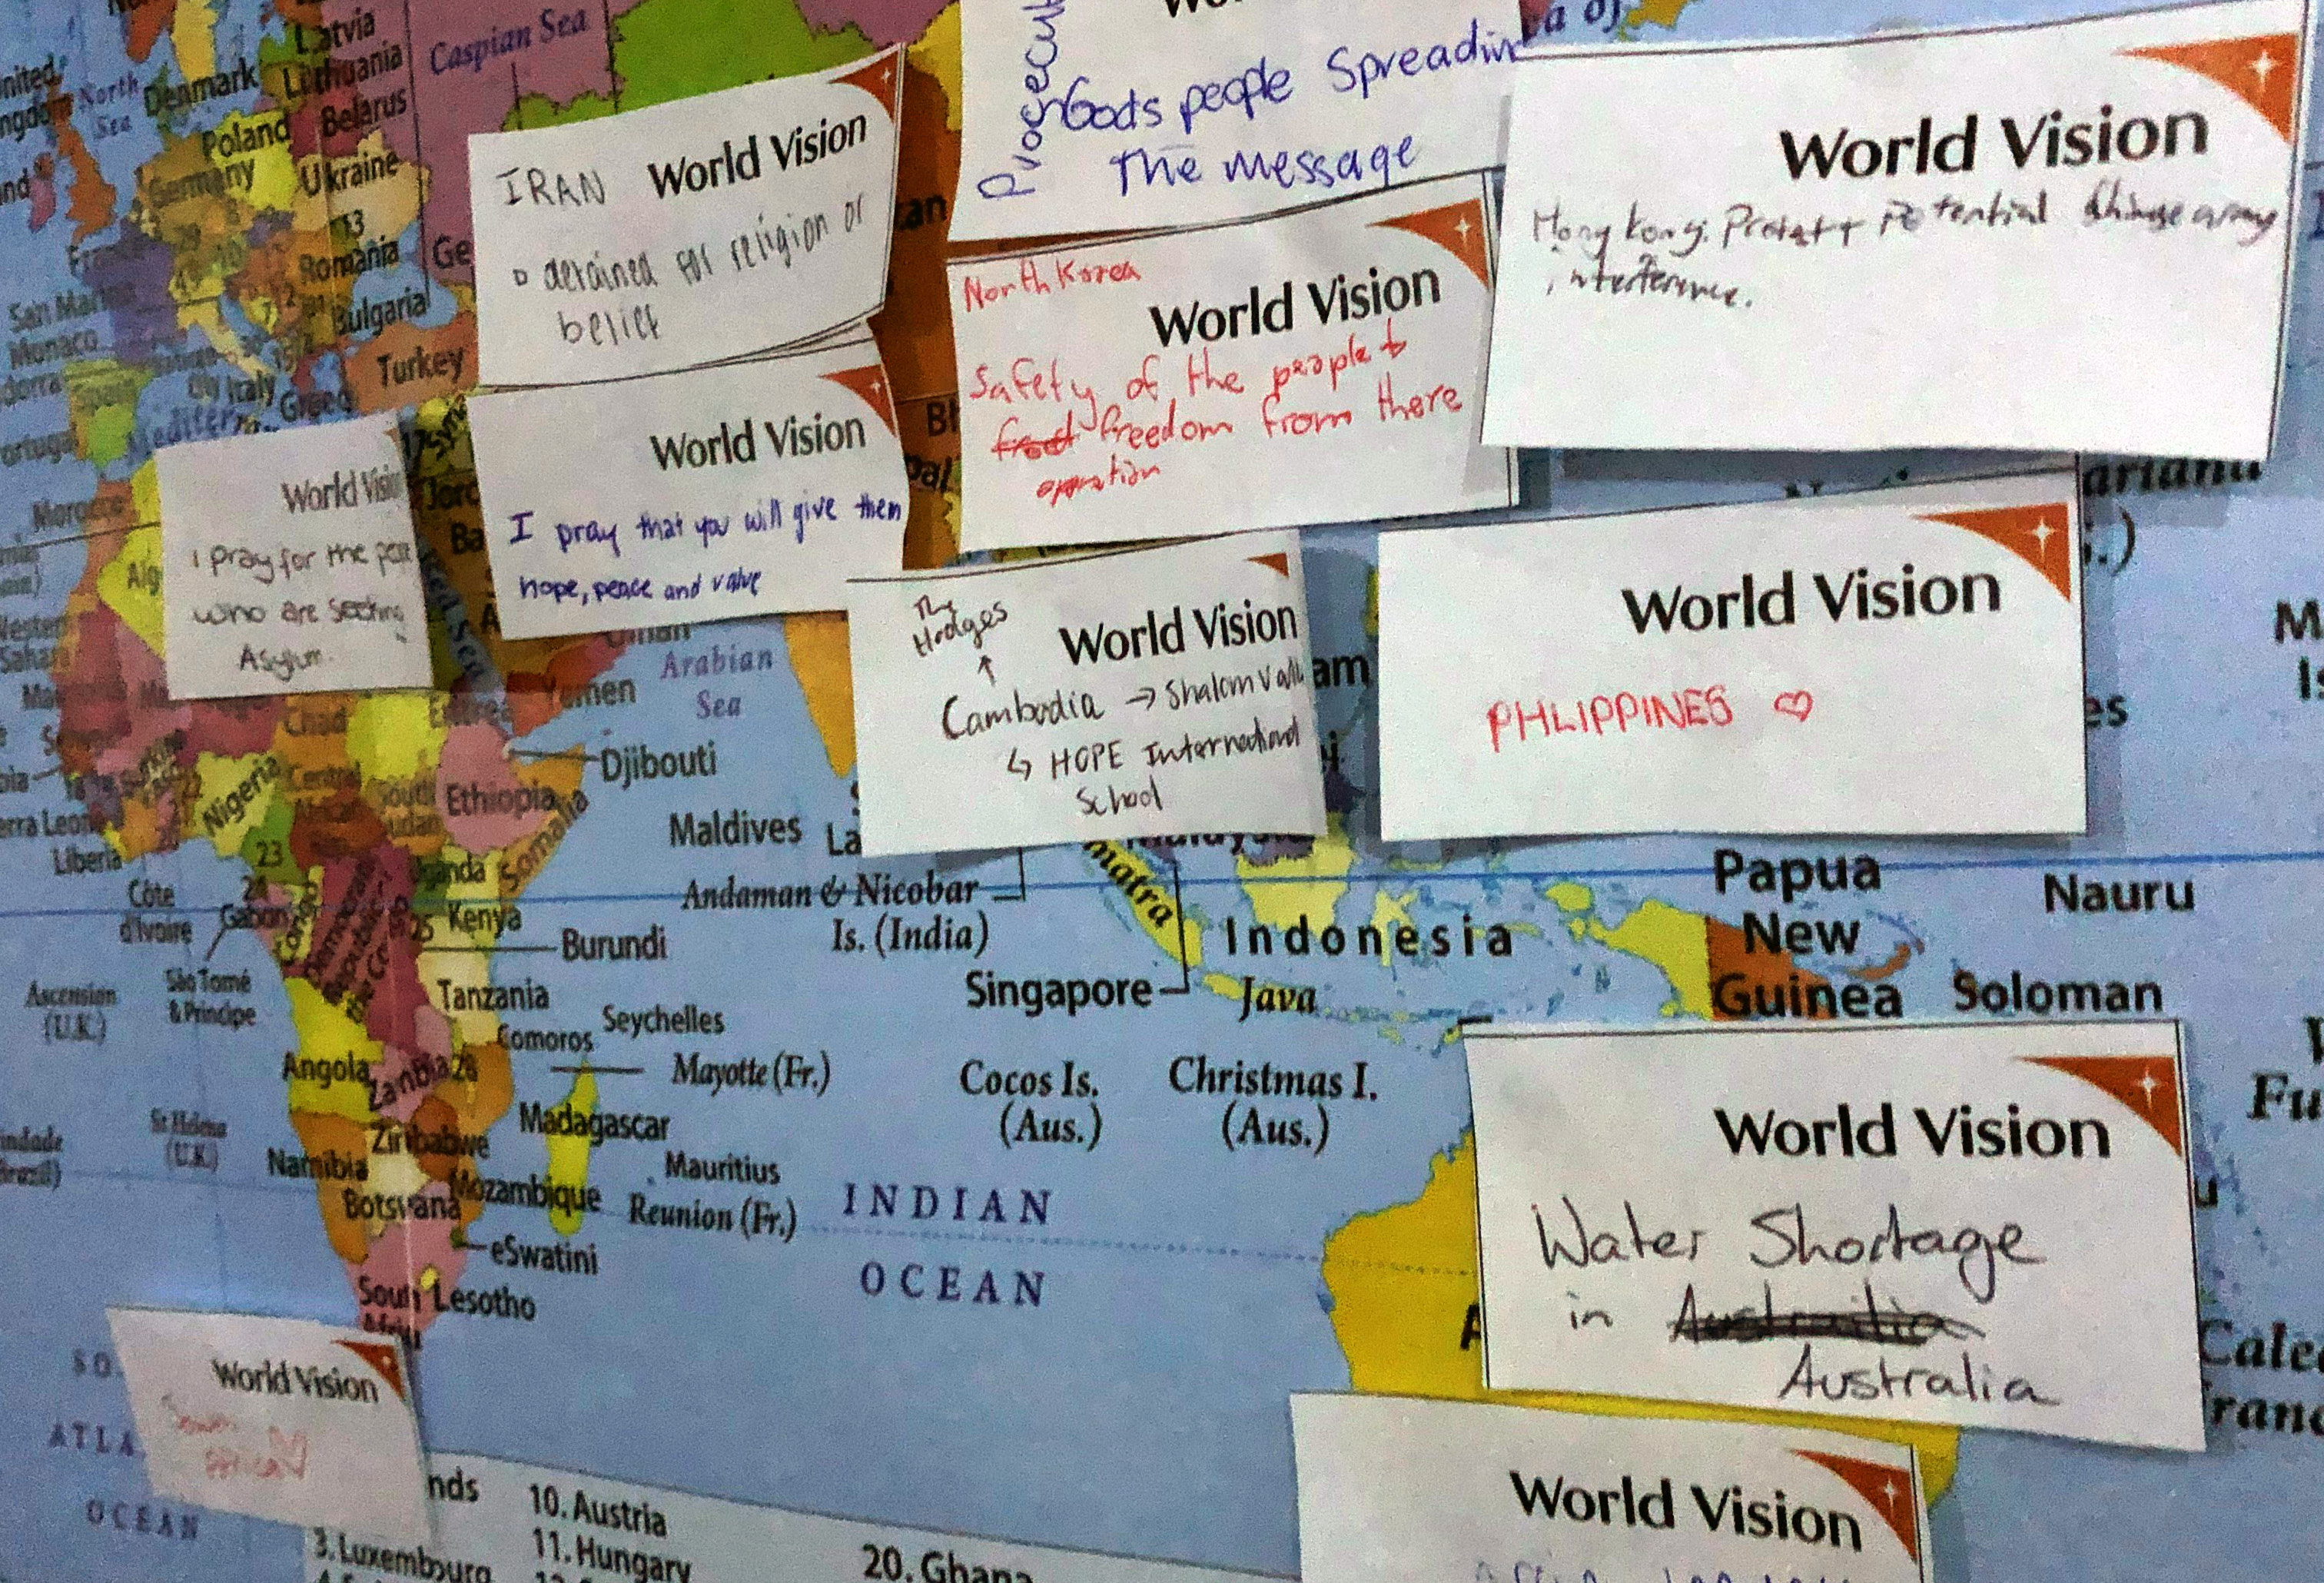 Latvia
Lithuania
Caspian Sea
North
Sea
Denmark
Belarus
Poland
Germany
Ukraine
13
Romania
Bulgaria
San Marino
Monaco
Turkey
Italy
Spain
Morocco
17
Gods people Spreading
The message
World Vision
IRAN
detained for religion or
belief
World Vision
North Korea
Safety of the people +
freedom from there
World Vision
Hong Kong: Protest + Potential Chinese army
interference.
World Vision
I pray for the
who are seeking
Asylum.
World Vision
I pray that you will give them
hope, peace and value
World Vision
The
Hodges
↑
Cambodia → Shalom
↳ HOPE International
School
World Vision
PHLIPPINES ♡
Arabian
Sea
Yemen
Eritrea
Chad
Djibouti
Nigeria
Central
African
South
Sudan
Ethiopia
Somalia
Maldives
Liberia
23
Uganda
24
Côte
d'Ivoire
Gabon
Congo
25
Kenya
Andaman & Nicobar
Is. (India)
Burundi
Indonesia
Papua
New
Guinea
Nauru
Ascension
(U.K.)
São Tomé
& Principe
Tanzania
Singapore
Java
Soloman
Seychelles
Comoros
Angola
Zambia
28
Mayotte (Fr.)
Cocos Is.
(Aus.)
Christmas I.
(Aus.)
St Helena
(U.K.)
Madagascar
Zimbabwe
Namibia
Mauritius
Botswana
Mozambique
Reunion (Fr.)
INDIAN
OCEAN
eSwatini
South
Lesotho
World Vision
Water Shortage
in Australia
World Vision
ATLA
OCEAN
World Vision
nds
10. Austria
3. Luxembourg
11. Hungary
20. Ghana